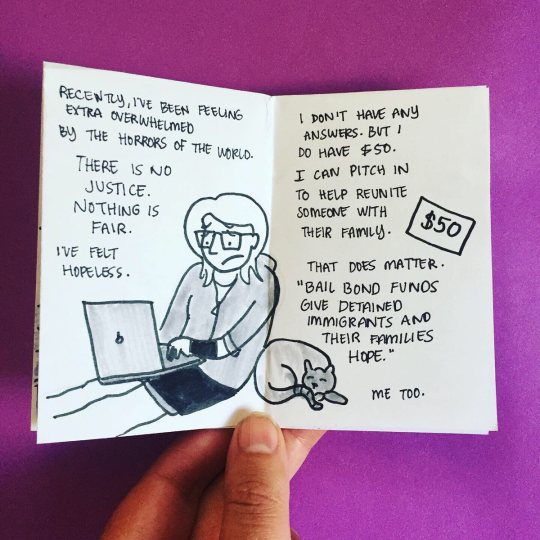 RECENTLY, I'VE BEEN FEELING
EXTRA OVERWHELMED
BY THE HORRORS OF THE WORLD.
THERE IS NO
JUSTICE.
NOTHING IS
FAIR.
I'VE FELT
HOPELESS.
I DON'T HAVE ANY
ANSWERS. BUT I
DO HAVE $50.
I CAN PITCH IN
TO HELP REUNITE
SOMEONE WITH
THEIR FAMILY.
$50
THAT DOES MATTER.
"BAIL BOND FUNDS
GIVE DETAINED
IMMIGRANTS AND
THEIR FAMILIES
HOPE."
ME TOO.